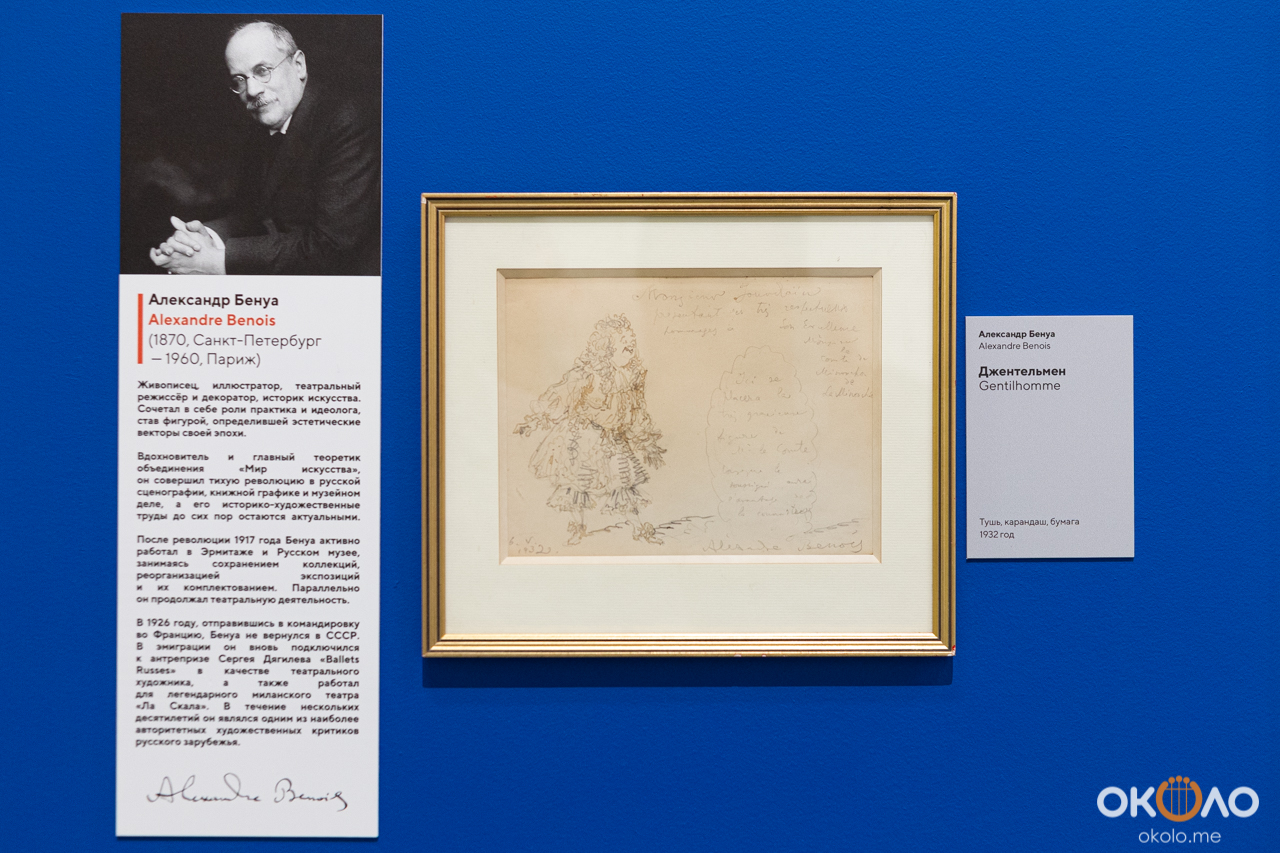 Александр Бенуа
Alexandre Benois
(1870, Санкт-Петербург
– 1960, Париж)
Живописец, иллюстратор, театральный
режиссёр и декоратор, историк искусства.
Сочетал в себе роли практика и идеолога,
став фигурой, определившей эстетические
векторы своей эпохи.
Вдохновитель и главный теоретик
объединения «Мир искусства»,
он совершил тихую революцию в русской
сценографии, книжной графике и музейном
деле, а его историко-художественные
труды до сих пор остаются актуальными.
После революции 1917 года Бенуа активно
работал в Эрмитаже и Русском музее,
занимаясь сохранением коллекций,
реорганизацией экспозиций
и их комплектованием. Параллельно
он продолжал театральную деятельность.
В 1926 году, отправившись в командировку
во Францию, Бенуа не вернулся в СССР.
В эмиграции он вновь подключился
к антрепризе Сергея Дягилева «Ballets
Russes» в качестве театрального
художника, а также работал
для легендарного миланского театра
«Ла Скала». В течение нескольких
десятилетий он являлся одним из наиболее
авторитетных художественных критиков
русского зарубежья.
Alexandre Benois
Monsieur Jourdain
présentant ses très respectueux
hommages à Son Excellence
de
Alexandre Benois
Александр Бенуа
Alexandre Benois
Джентельмен
Gentilhomme
Тушь, карандаш, бумага
1932 год
ОКОЛО
okolo.me